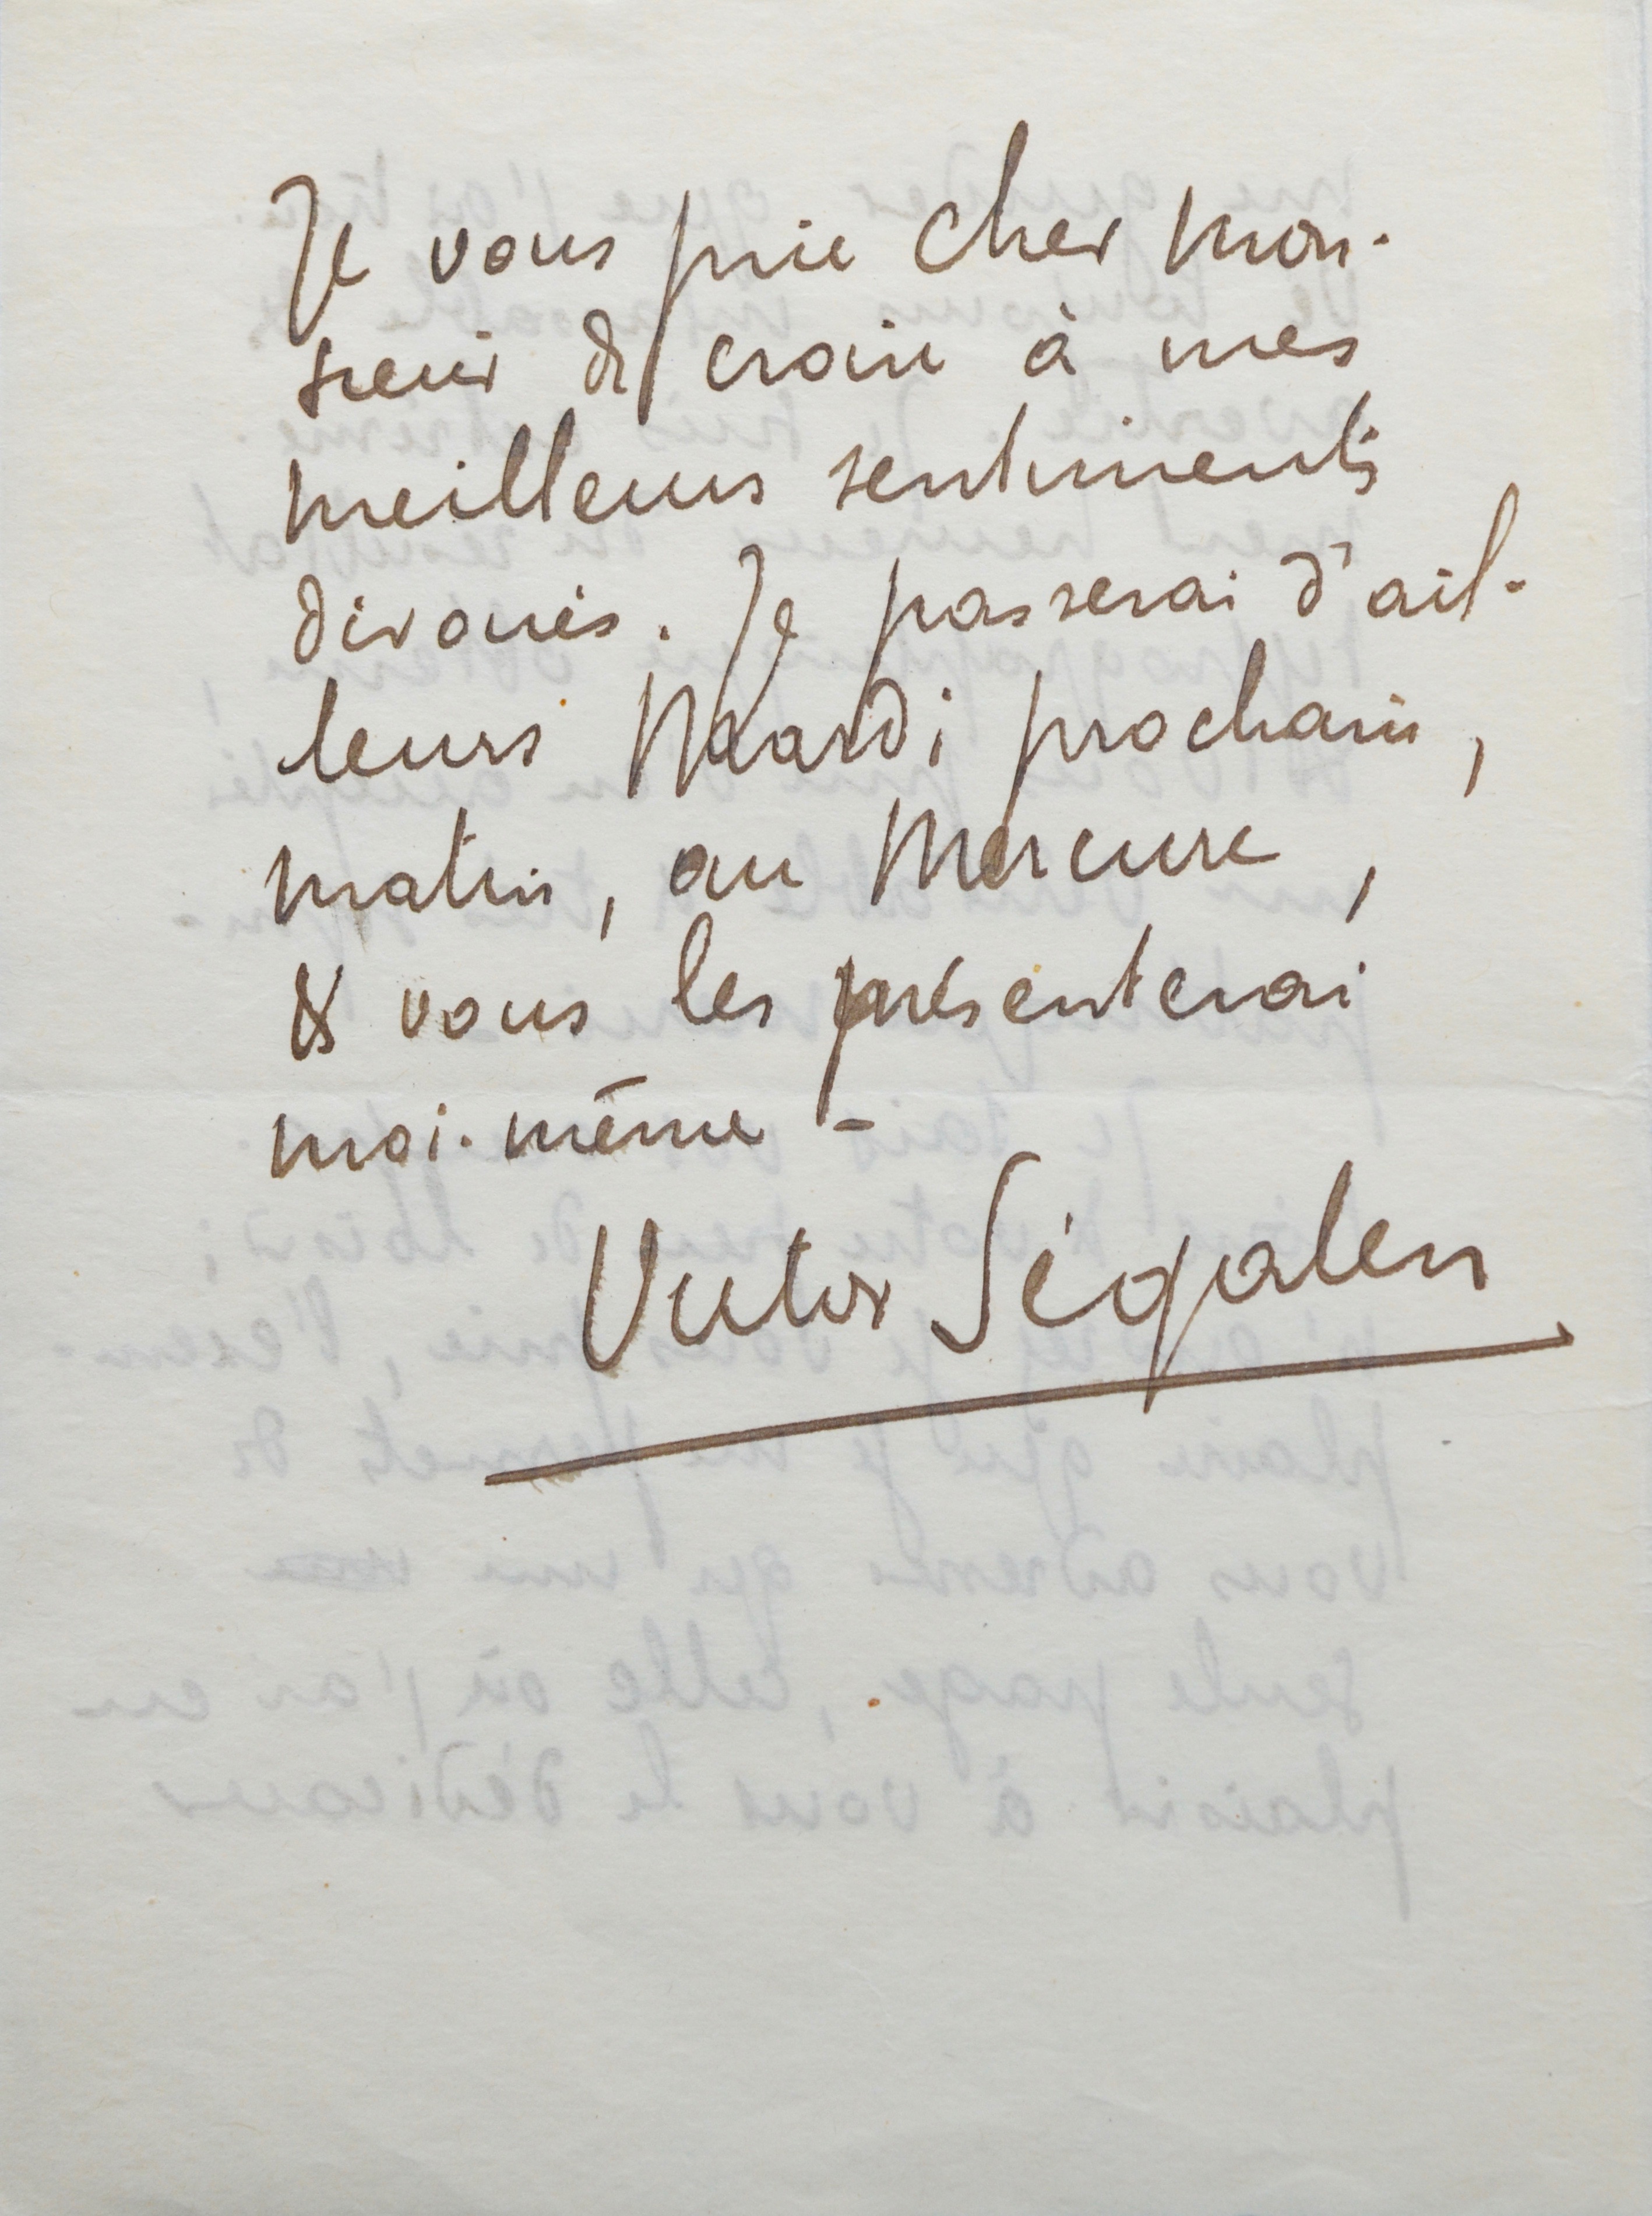 Je vous prie cher Mon-
sieur de croire à mes
meilleurs sentiments
dévoués. Je passerai d'ail-
leurs Mardi prochain,
matin, au Mercure,
& vous les présenterai
moi-même -
Victor Ségalen